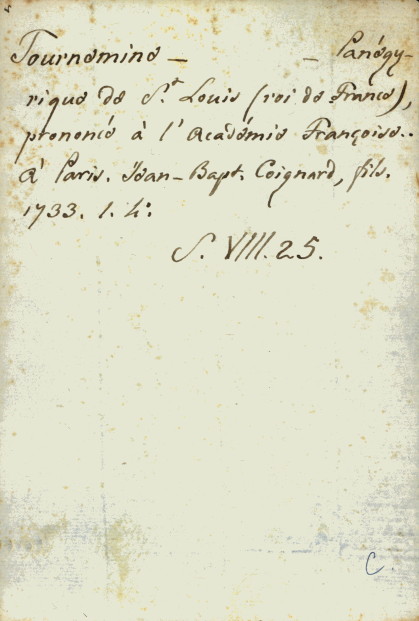 Tournemine — — Panégy-
rique de S.t Louis (roi de France),
prononcé à l'Académie Françoise..
à Paris. Jean-Bapt. Coignard, fils.
1733. 1. 4°.
S. VIII. 25.
C.